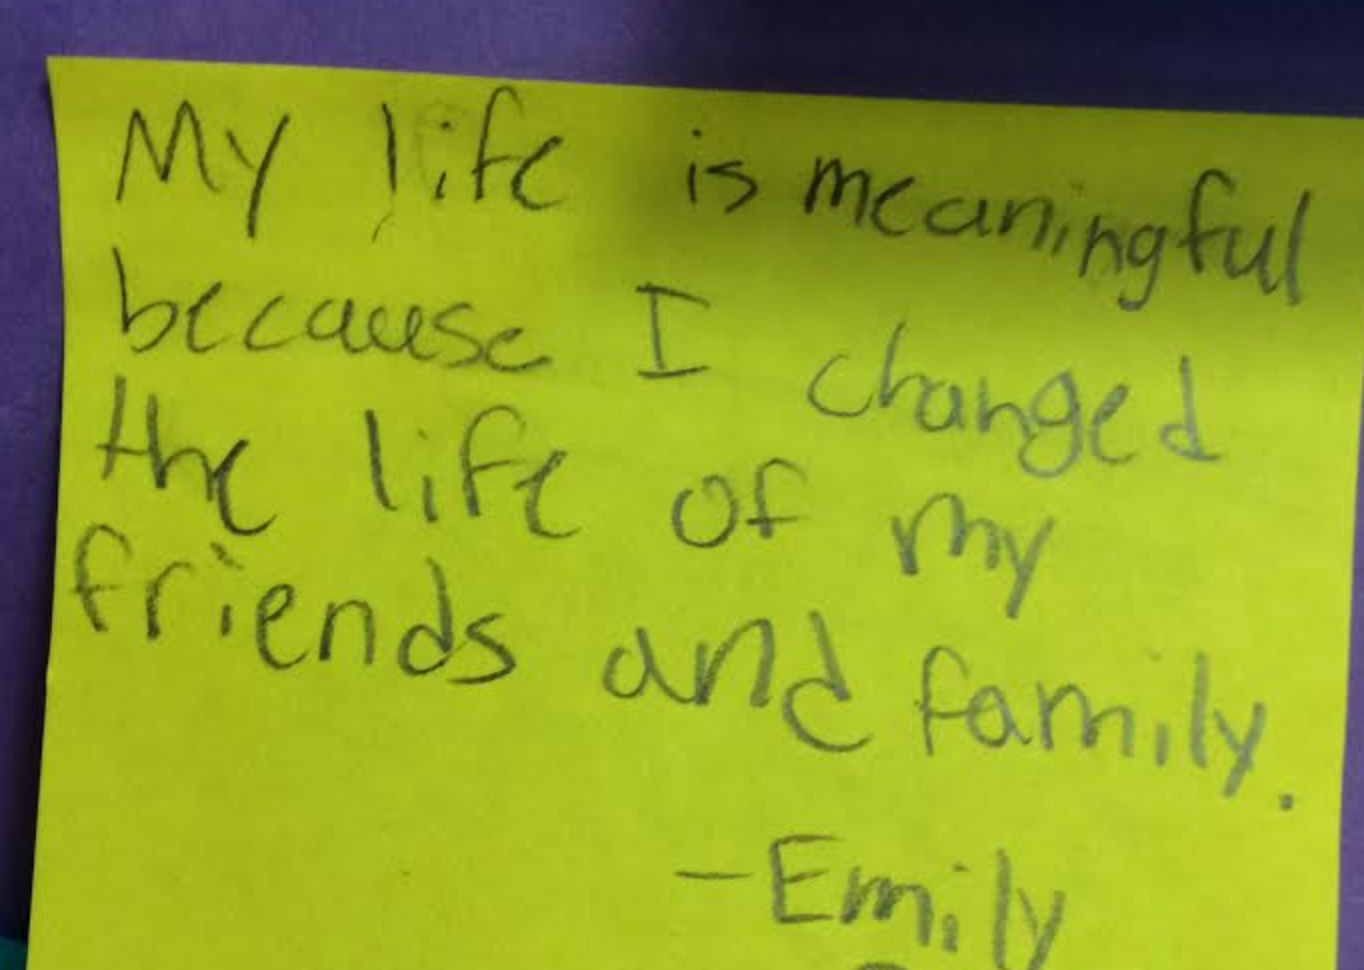 My life is meaningful
because I changed
the life of my
friends and family.
-Emily